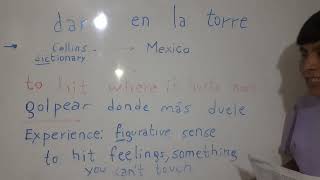 dar en la torre
→ Collins dictionary → Mexico
to hit where it hurts most
golpear donde más duele
Experience: figurative sense
to hit feelings, something
you can't touch